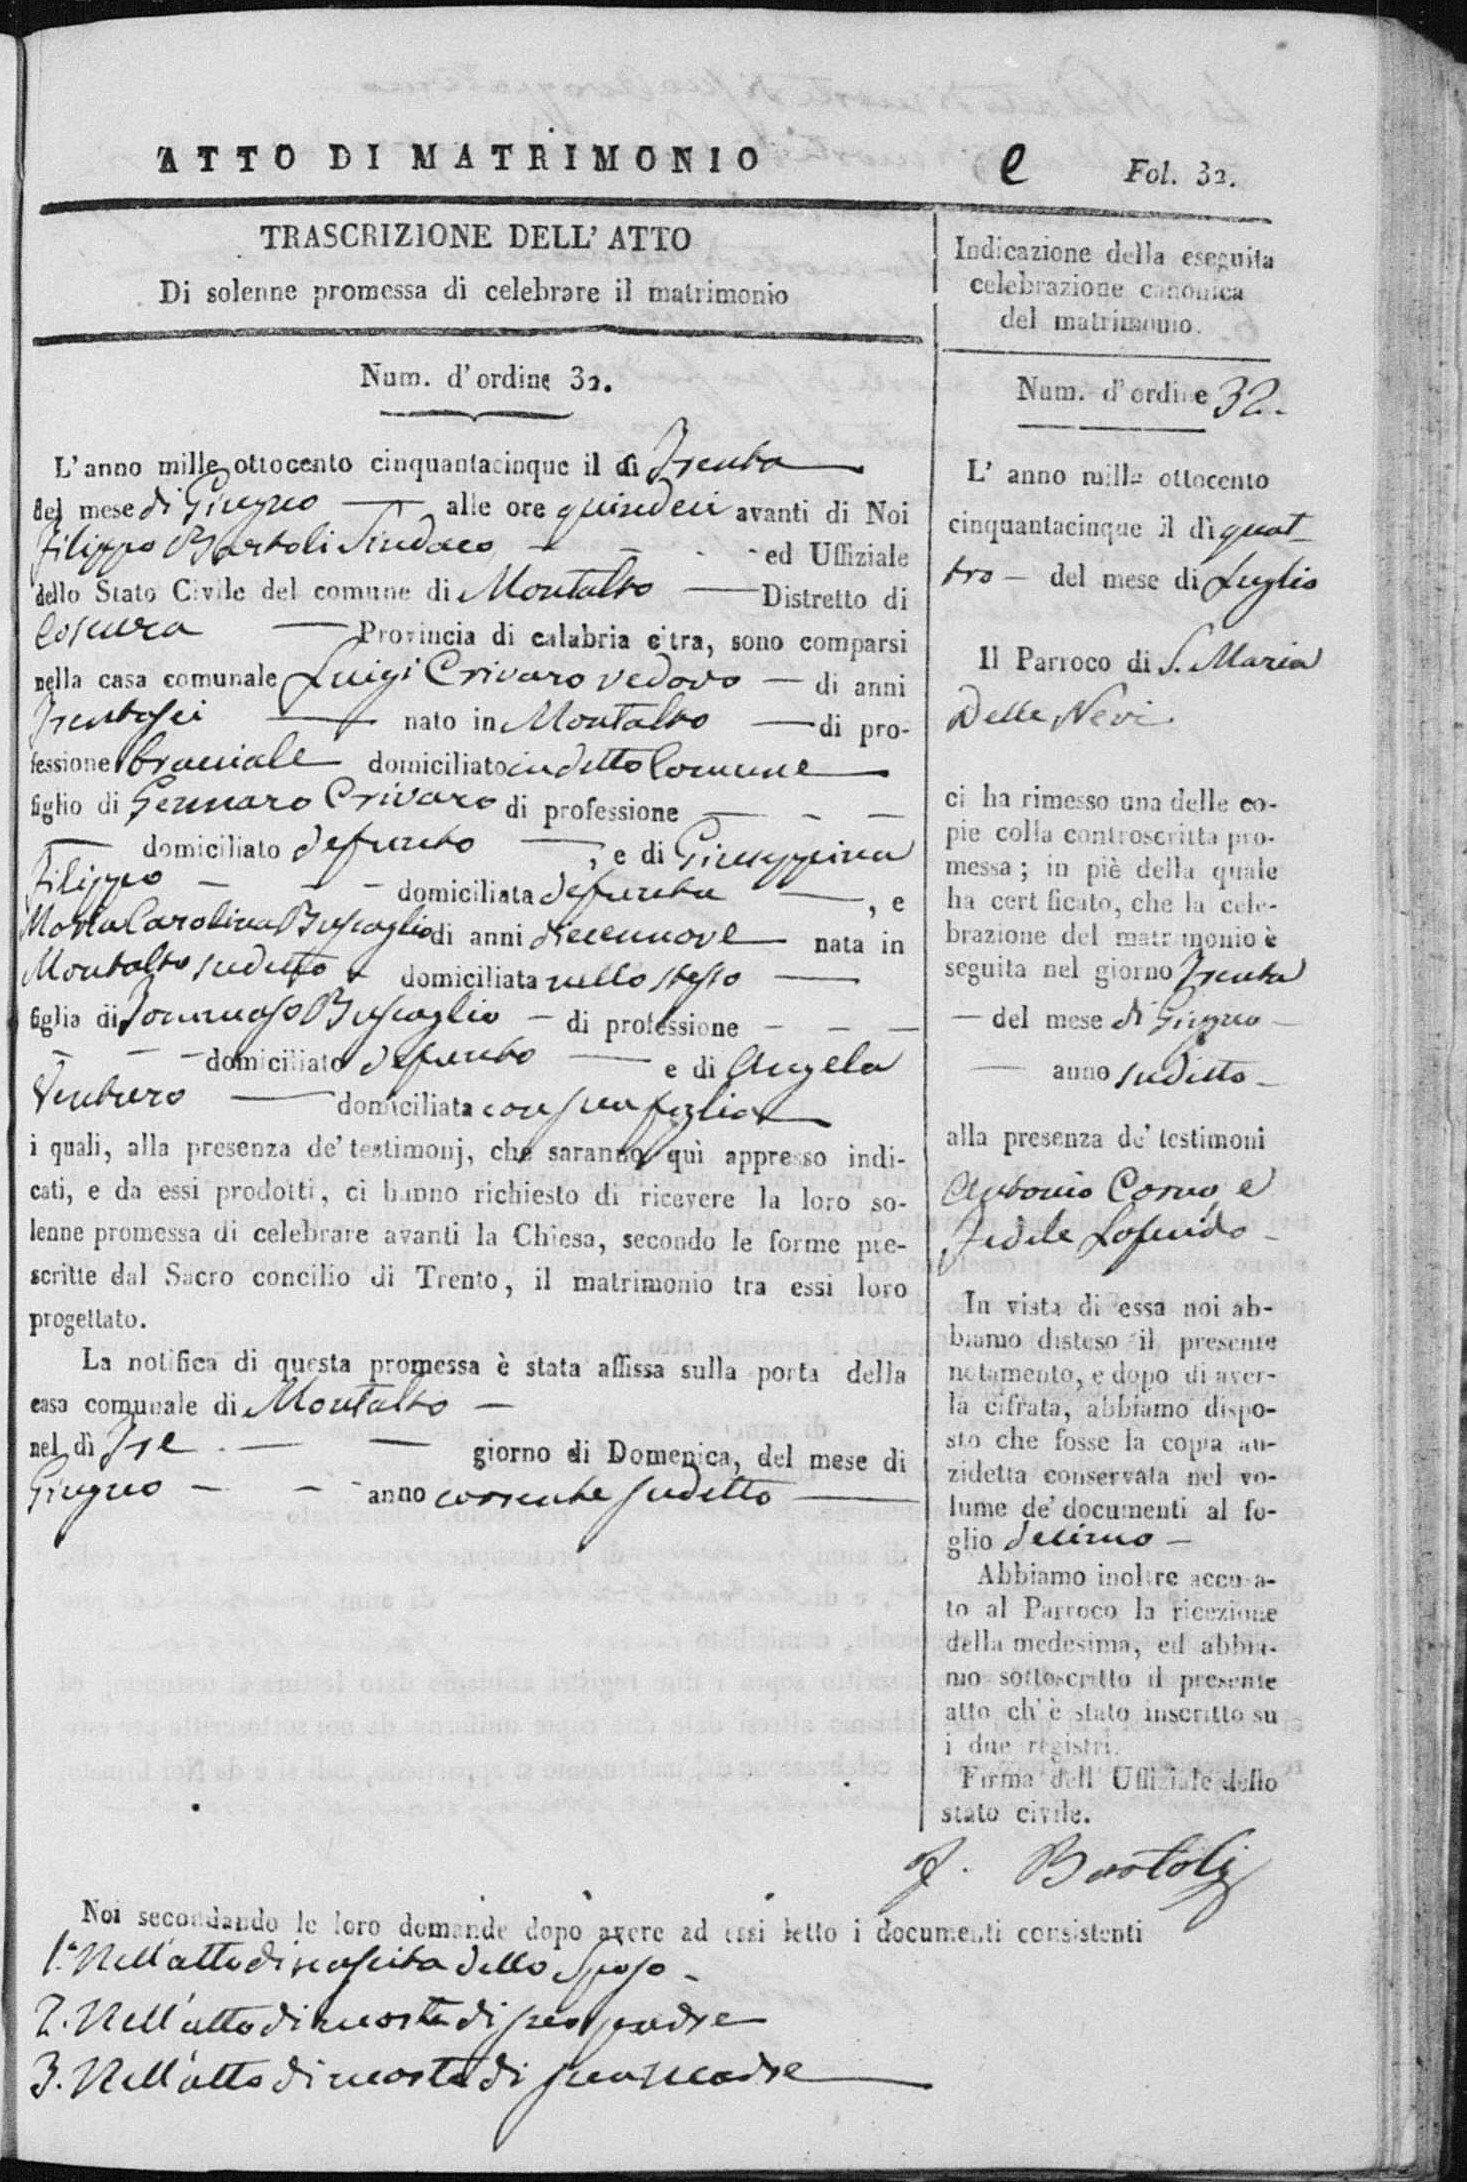 ATTO DI MATRIMONIO
e Fol. 32.
TRASCRIZIONE DELL' ATTO
Di solenne promessa di celebrare il matrimonio
Num. d'ordine 32.
L'anno mille ottocento cinquantacinque il dì Trenta
del mese di Giugno alle ore quindeci avanti di Noi
Filippo Bartoli Sindaco ed Uffiziale
dello Stato Civile del comune di Montalto Distretto di
Cosenza Provincia di calabria citra, sono comparsi
nella casa comunale Luigi Crivaro vedovo di anni
Trentasei nato in Montalto di pro-
fessione bracciale domiciliato in detto Comune
figlio di Gennaro Crivaro di professione
domiciliato defunto, e di Giuseppina
Filippo domiciliata defunta, e
Maria Carolina Buscaglio di anni diecennove nata in
Montalto sudetto domiciliata nello stesso
figlia di Tommaso Buscaglio di professione
domiciliato defunto e di Angela
Venturo domiciliata con sua figlia
i quali, alla presenza de' testimonj, che saranno quì appresso indi-
cati, e da essi prodotti, ci hanno richiesto di ricevere la loro so-
lenne promessa di celebrare avanti la Chiesa, secondo le forme pre-
scritte dal Sacro concilio di Trento, il matrimonio tra essi loro
progettato.
La notifica di questa promessa è stata affissa sulla porta della
casa comunale di Montalto
nel dì Tre giorno di Domenica, del mese di
Giugno anno corrente sudetto
Indicazione della eseguita
celebrazione canonica
del matrimonio.
Num. d'ordine 32.
L' anno mille ottocento
cinquantacinque il dì quat-
tro del mese di Luglio
Il Parroco di S. Maria
Delle Nevi
ci ha rimesso una delle co-
pie colla controscritta pro-
messa; in piè della quale
ha certificato, che la cele-
brazione del matrimonio è
seguita nel giorno Trenta
del mese di Giugno
anno sudetto
alla presenza de' testimoni
Antonio Corno e
Fedele
In vista di essa noi ab-
biamo disteso il presente
notamento, e dopo di aver-
la cifrata, abbiamo dispo-
sto che fosse la copia an-
zidetta conservata nel vo-
lume de' documenti al fo-
glio decimo
Abbiamo inoltre accusa-
to al Parroco la ricezione
della medesima, ed abbia-
mo sottoscritto il presente
atto ch'è stato inscritto su
i due registri.
Firma dell Uffiziale dello
stato civile.
F. Bartoli
Noi secondando le loro domande dopo avere ad essi letto i documenti consistenti
1.° Nell'atto di nascita dello Sposo
2. Nell'atto di morte di suo padre
3. Nell'atto di morte di sua madre